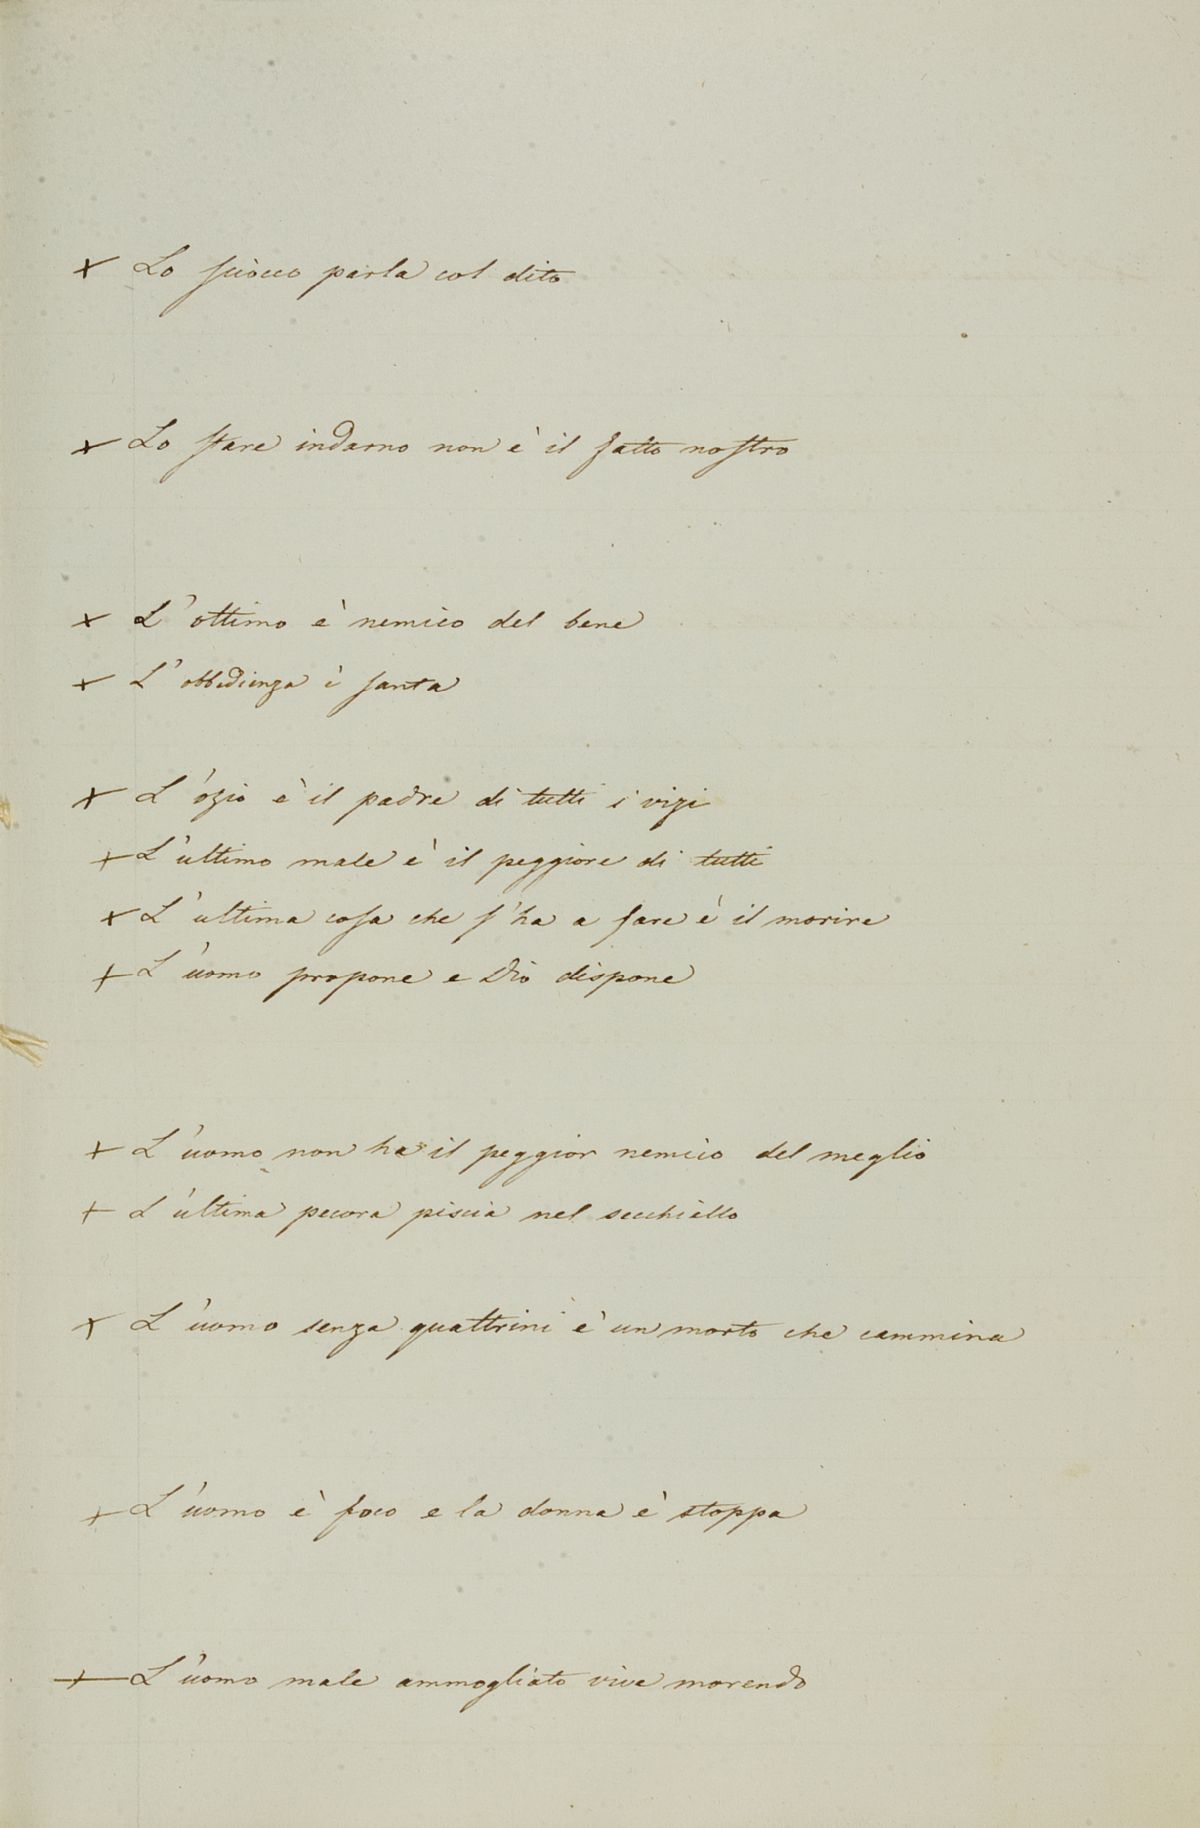 × Lo sciocco parla col dito
× Lo stare indarno non è il fatto nostro
× L'ottimo è nemico del bene
× L'obbedienza è santa
× L'ozio è il padre di tutti i vizi
× L'ultimo male è il peggiore di tutti
× L'ultima cosa che s'ha a fare è il morire
× L'uomo propone e Dio dispone
× L'uomo non ha il peggior nemico del meglio
× L'ultima pecora piscia nel secchiello
× L'uomo senza quattrini è un morto che cammina
× L'uomo è foco e la donna è stoppa
× L'uomo male ammogliato vive morendo